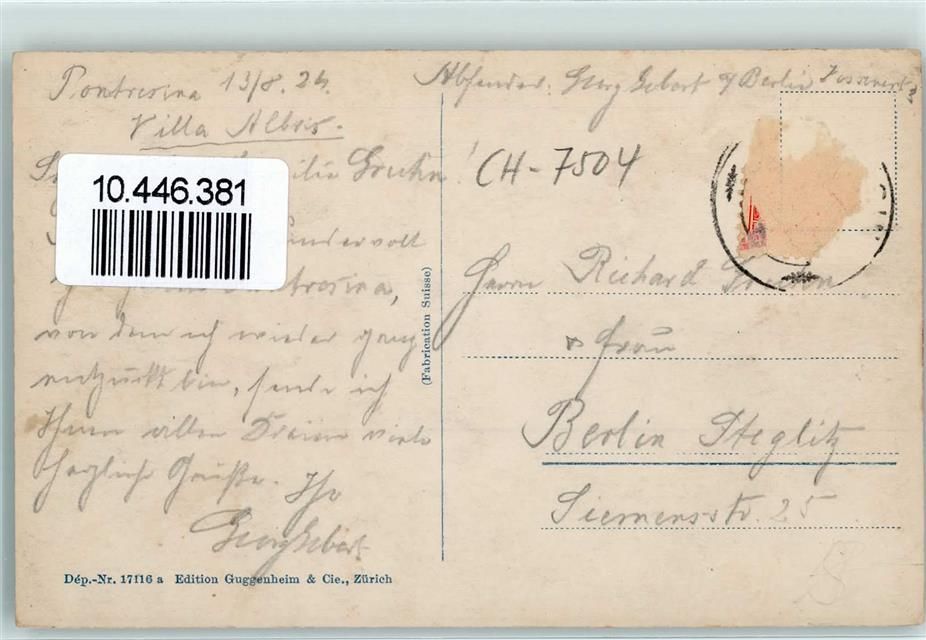 Pontresina 13/8. 24.
Villa Albris.
Absender: Georg Gebert
Berlin
CH-7504
10.446.381
Pontresina,
von dem ich wieder ganz
entzückt bin, sende ich
Ihnen allen Dreien viele
herzliche Grüße. Ihr
Georg Gebert
(Fabrication Suisse)
Herrn Richard
& Frau
Berlin Steglitz
Siemensstr. 25
Dép.-Nr. 17116 a Edition Guggenheim & Cie., Zürich